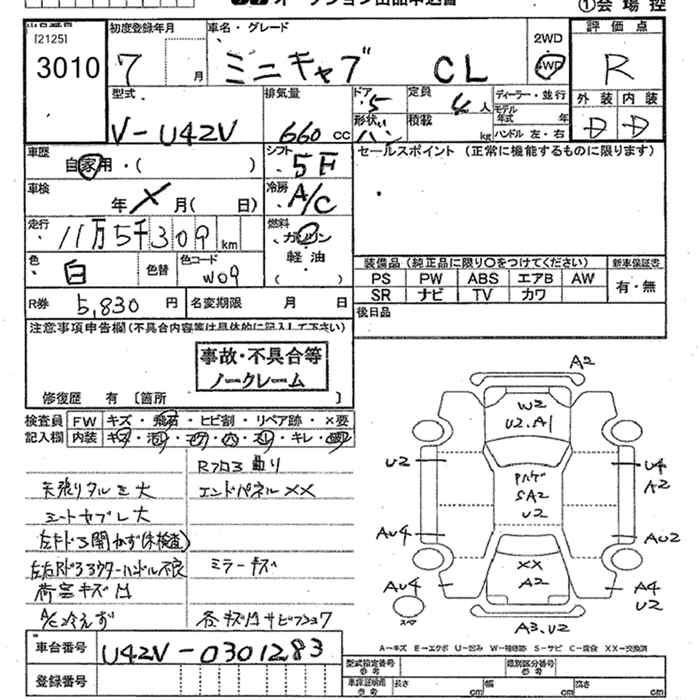 オークション出品申込書
①会場控
[2125]
3010
初度登録年月
7 月
車名・グレード
ミニキャブ CL
2WD
4WD
評価点
R
型式
V-U42V
排気量
660 cc
ドア 5
形状 バン
定員 4 人
積載 kg
ディーラー・並行
モデル年式 年
ハンドル 左・右
外装 内装
D D
車歴
自家用・( )
シフト
5F
セールスポイント (正常に機能するものに限ります)
車検
年 X 月( 日)
冷房
A/C
走行
11万5千309 km
燃料
ガソリン
軽油
( )
色
白
色替
色コード
W09
装備品 (純正品に限り○をつけてください)
新車保証書
PS PW ABS エアB AW
SR ナビ TV カワ
有・無
R券 5,830 円
名変期限 月 日
後日品
注意事項申告欄(不具合内容等は具体的に記入して下さい)
事故・不具合等
ノークレーム
修復歴 有 〔箇所 〕
検査員
記入欄
FW キズ・飛石・ヒビ割・リペア跡・×要
内装 キズ・汚レ・コゲ・穴・スレ・キレ・
Rフロア曲り
天張りタルミ大
エンドパネルXX
シートヤブレ大
左Fドア開かず(未検査)
左右Rドアアウターハンドル不良
ミラーキズ
荷室キズ凹
A/C冷えず
各キズ凹サビ
A2
W2
U2.A1
U2
U4
A2
SA2
U2
AU4
AU2
XX
A2
AU4
A4
U2
スペア
A3.U2
A-キズ E-エクボ U-凹み W-補修跡 S-サビ C-腐食 XX-交換済
車台番号
U42V-0301283
登録番号
型式指定番号
参考
類別区分番号
車庫証明用
参考
長さ cm
幅 cm
高さ cm